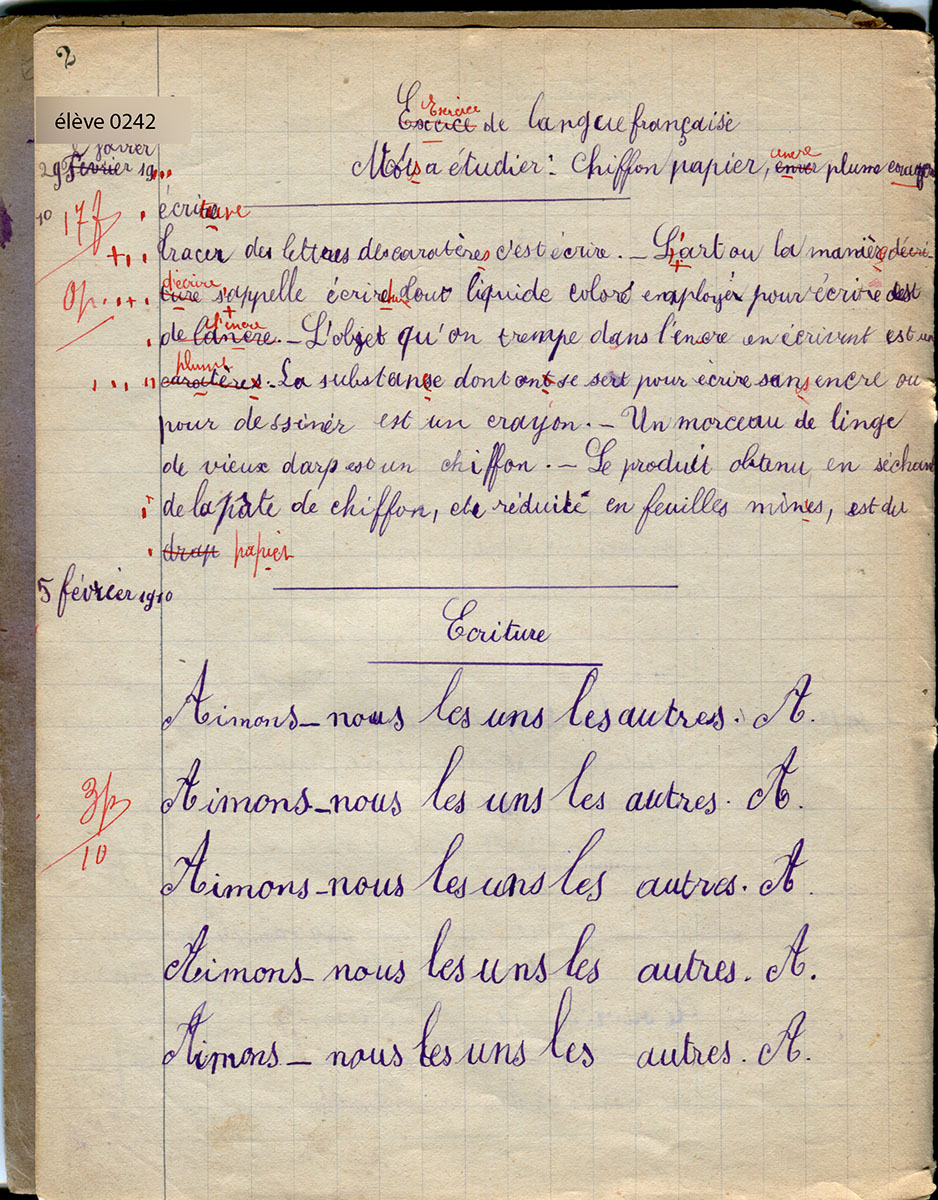 2
élève 0242
Exercice
Excice de langue française
janvier
29 Février 19
Mots a étudier : chiffon papier, encre plume crayon
10 17f
écriture
tracer des lettres des caratères c'est écrire. – L'art ou la manière décri-
d'écrire
ture s'appelle écriture tout liquide coloré employé pour écrire est
0p
l'encre
de l'ancre. – L'objet qu'on trempe dans l'encre en écrivant est un
plume
caratères. La substance dont on se sert pour écrire sans encre ou
pour dessinér est un crayon. – Un morceau de linge
de vieux darp est un chiffon. – Le produit obtenu en séchan
de la pâte de chiffon, etc réduite en feuilles mines, est du
drap papier
5 février 1910
Ecriture
Aimons-nous les uns les autres. A.
Aimons-nous les uns les autres. A.
3p
10
Aimons-nous les uns les autres. A.
Aimons-nous les uns les autres. A.
Aimons-nous les uns les autres. A.